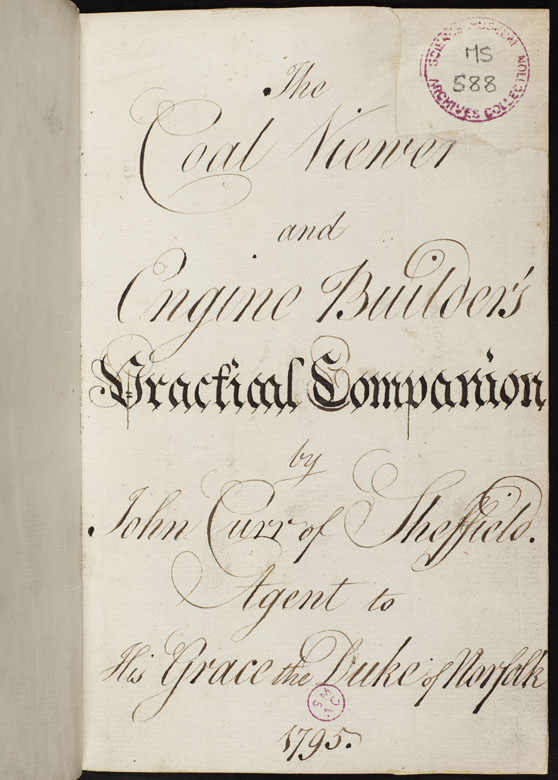 SCIENCE MUSEUM
MS
588
ARCHIVES COLLECTION
The
Coal Viewer
and
Engine Builder's
Practical Companion
by
John Curr of Sheffield.
Agent to
His Grace the Duke of Norfolk
SMAC
1795.